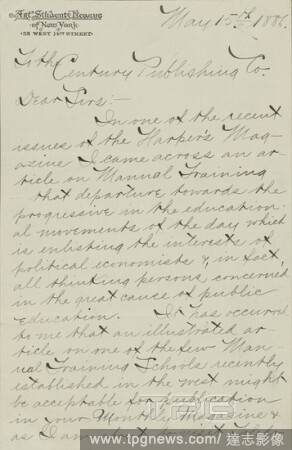 Art Students League
of New York
38 WEST 14TH STREET
May 15th, 1886.
To the
Century Publishing Co.
Dear Sirs:-
In one of the recent
issues of the Harper's Mag-
azine I came across an ar-
ticle on Manual Training
- that departure towards the
progressive in the education-
al movements of the day which
is enlisting the interests of
political economists &, in fact,
all thinking persons concerned
in the great cause of public
education. It has occurred
to me that an illustrated ar-
ticle on one of the few Man-
ual Training Schools recently
established in the west might
be acceptable for publication
in your Monthly Magazine &
as I am
www.tpgnews.com / 達志影像